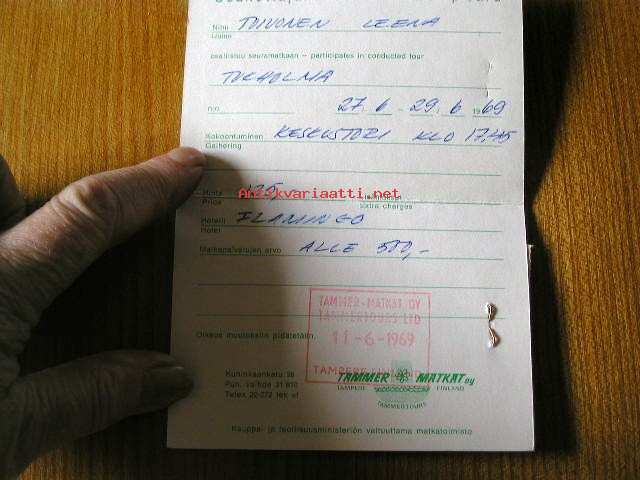 Nimi TOIVONEN LEENA
Name
osallistuu seuramatkaan – participates in conducted tour
TUKHOLMA
n:o 27.6 - 29.6 1969
Kokoontuminen KESKUSTORI KLO 17,45
Gathering
Hinta
Antikvariaatti.net
Price Extra charges
Hotelli FLAMINGO
Hotel
Matkapalvelujen arvo ALLE 500,-
TAMMER-MATKAT OY
TAMMERTOURS LTD
11-6-1969
TAMPERE FINLAND
Oikeus muutoksiin pidätetään.
Kuninkaankatu 28
Puh. vaihde 31 810
Telex 22-272 tek sf
TAMMER MATKAT oy
TAMPERE FINLAND
TAMMERTOURS
Kauppa- ja teollisuusministeriön valtuuttama matkatoimisto